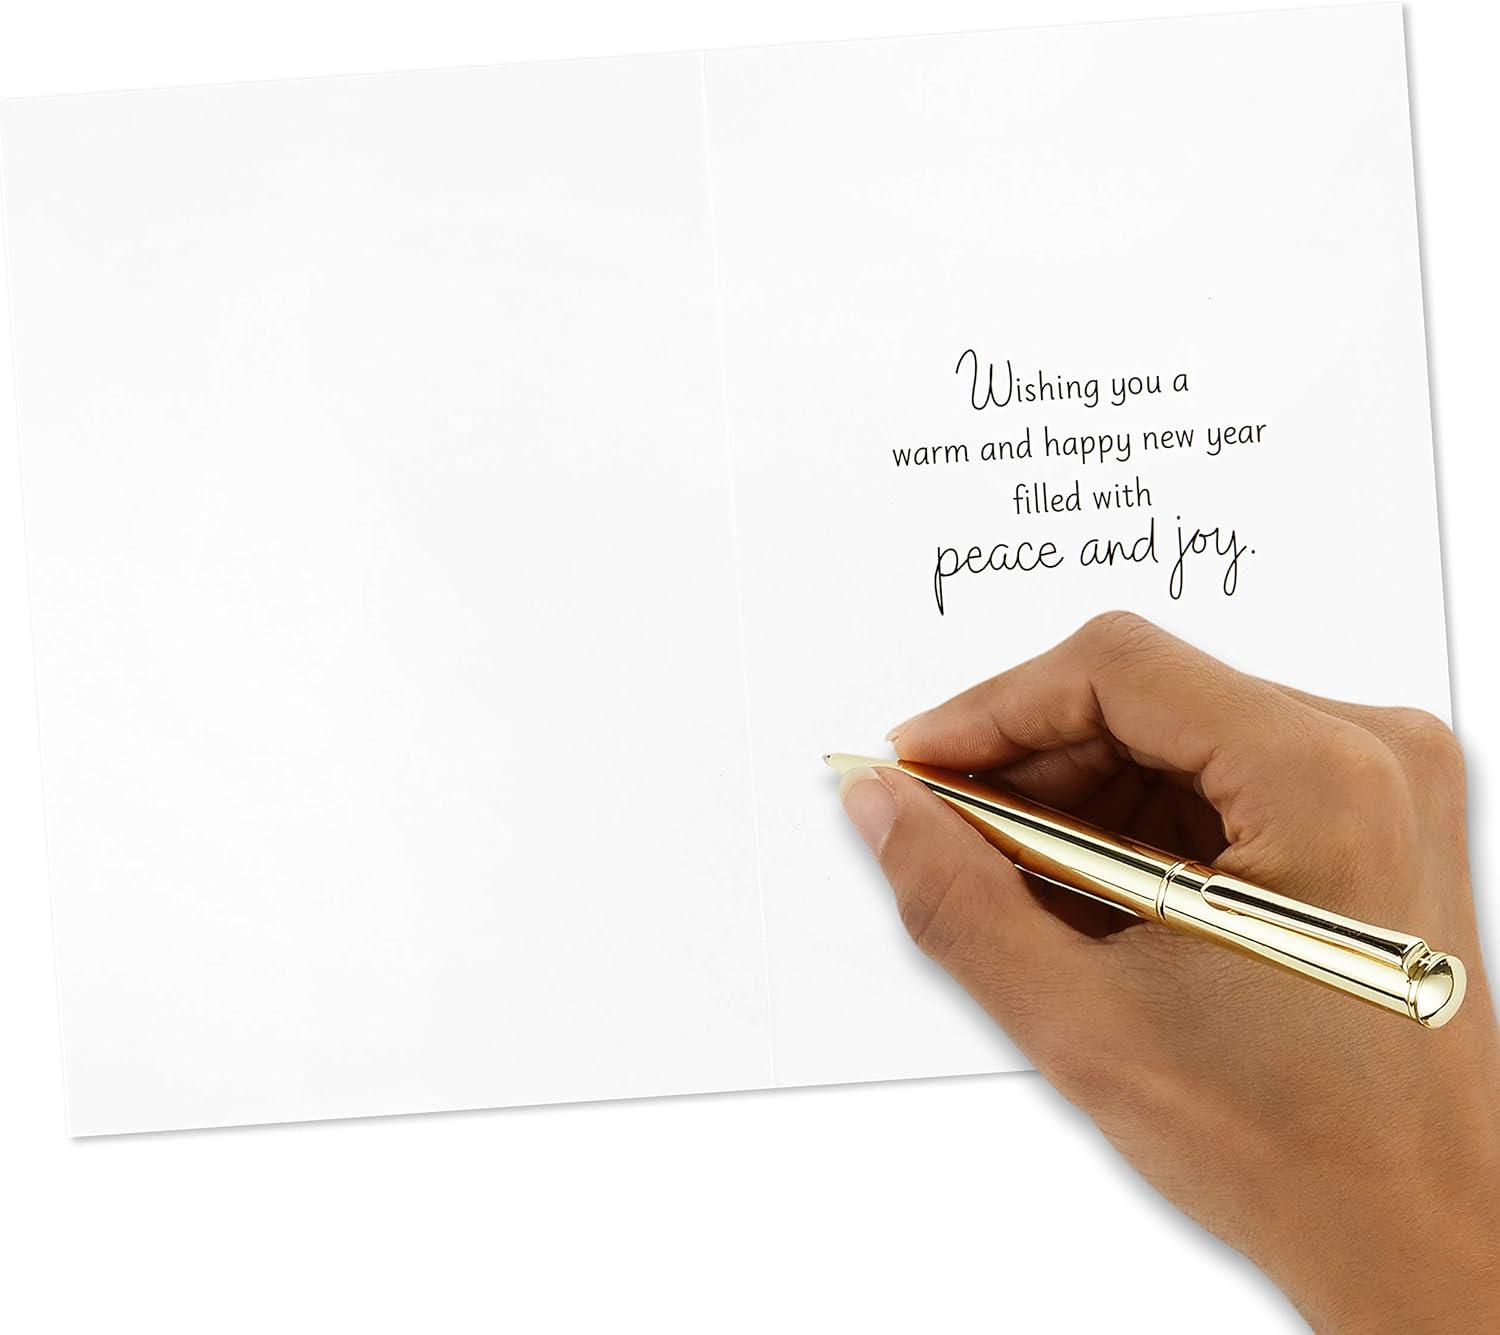 Wishing you a
warm and happy new year
filled with
peace and joy.